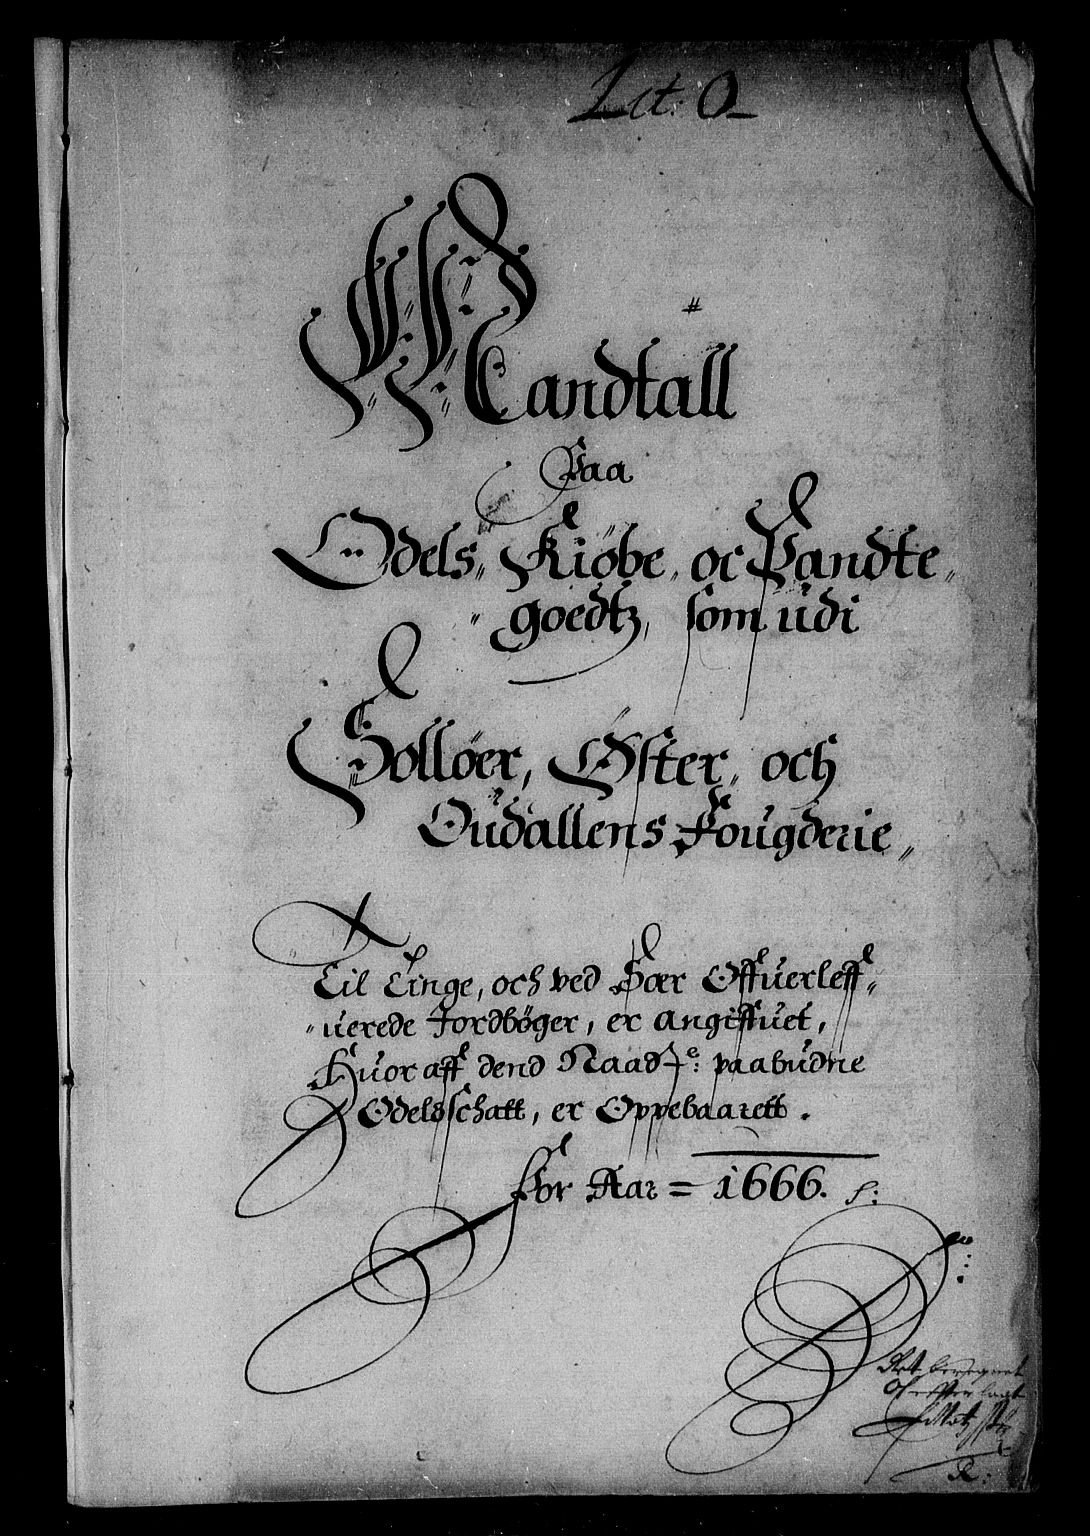 Lit: O
Mandtall
Paa
Odels, Kiøbe, oc Pandte,,
,, goedtz, som udi
Sollöer, Øster, och
Oudallens Fougderie,,
Til Tinge, och ved Sær Offuerleff,,
,,uerede Jordböger, er angiffuet,
Huor aff dend Naadge: paabudne
Odelsschatt, er Oppebaarett.
For Aar = 1666. s: